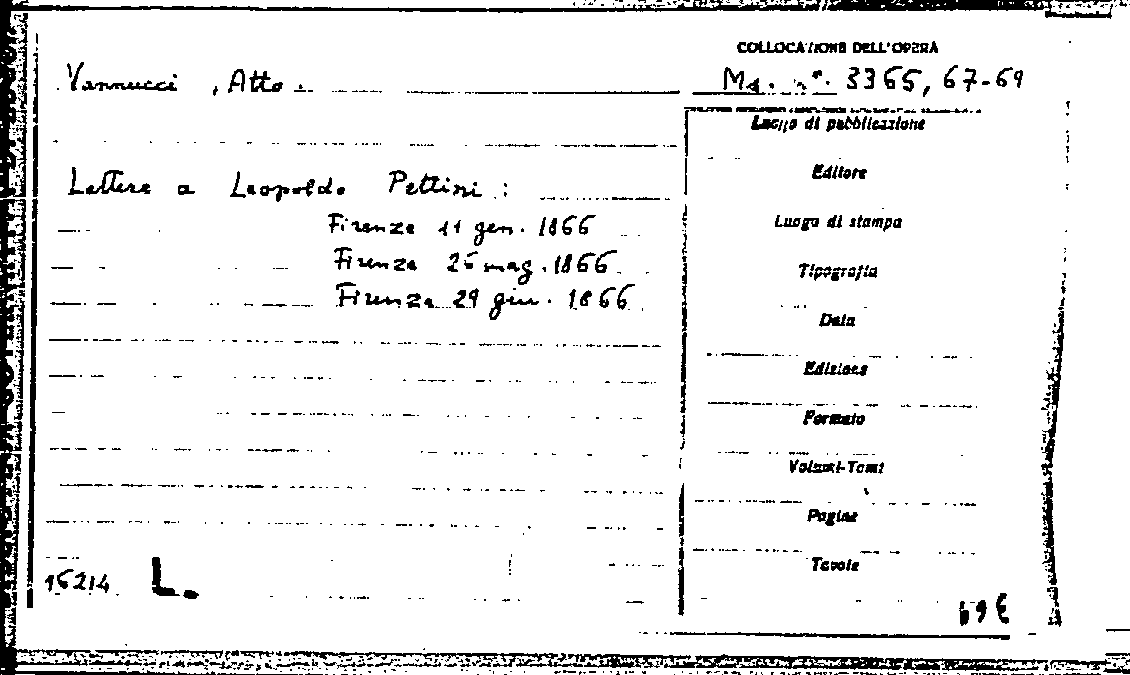 COLLOCAZIONE DELL'OPERA
Vannucci , Atto .
Ms. n°. 3365, 67-69
Luogo di pubblicazione
Lettere a Leopoldo Pettini :
Editore
Firenze 11 gen. 1866
Luogo di stampa
Firenze 25 mag. 1866
Tipografia
Firenze 29 giu. 1866
Data
Edizione
Formato
Volumi-Tomi
Pagine
Tavole
16214 L.